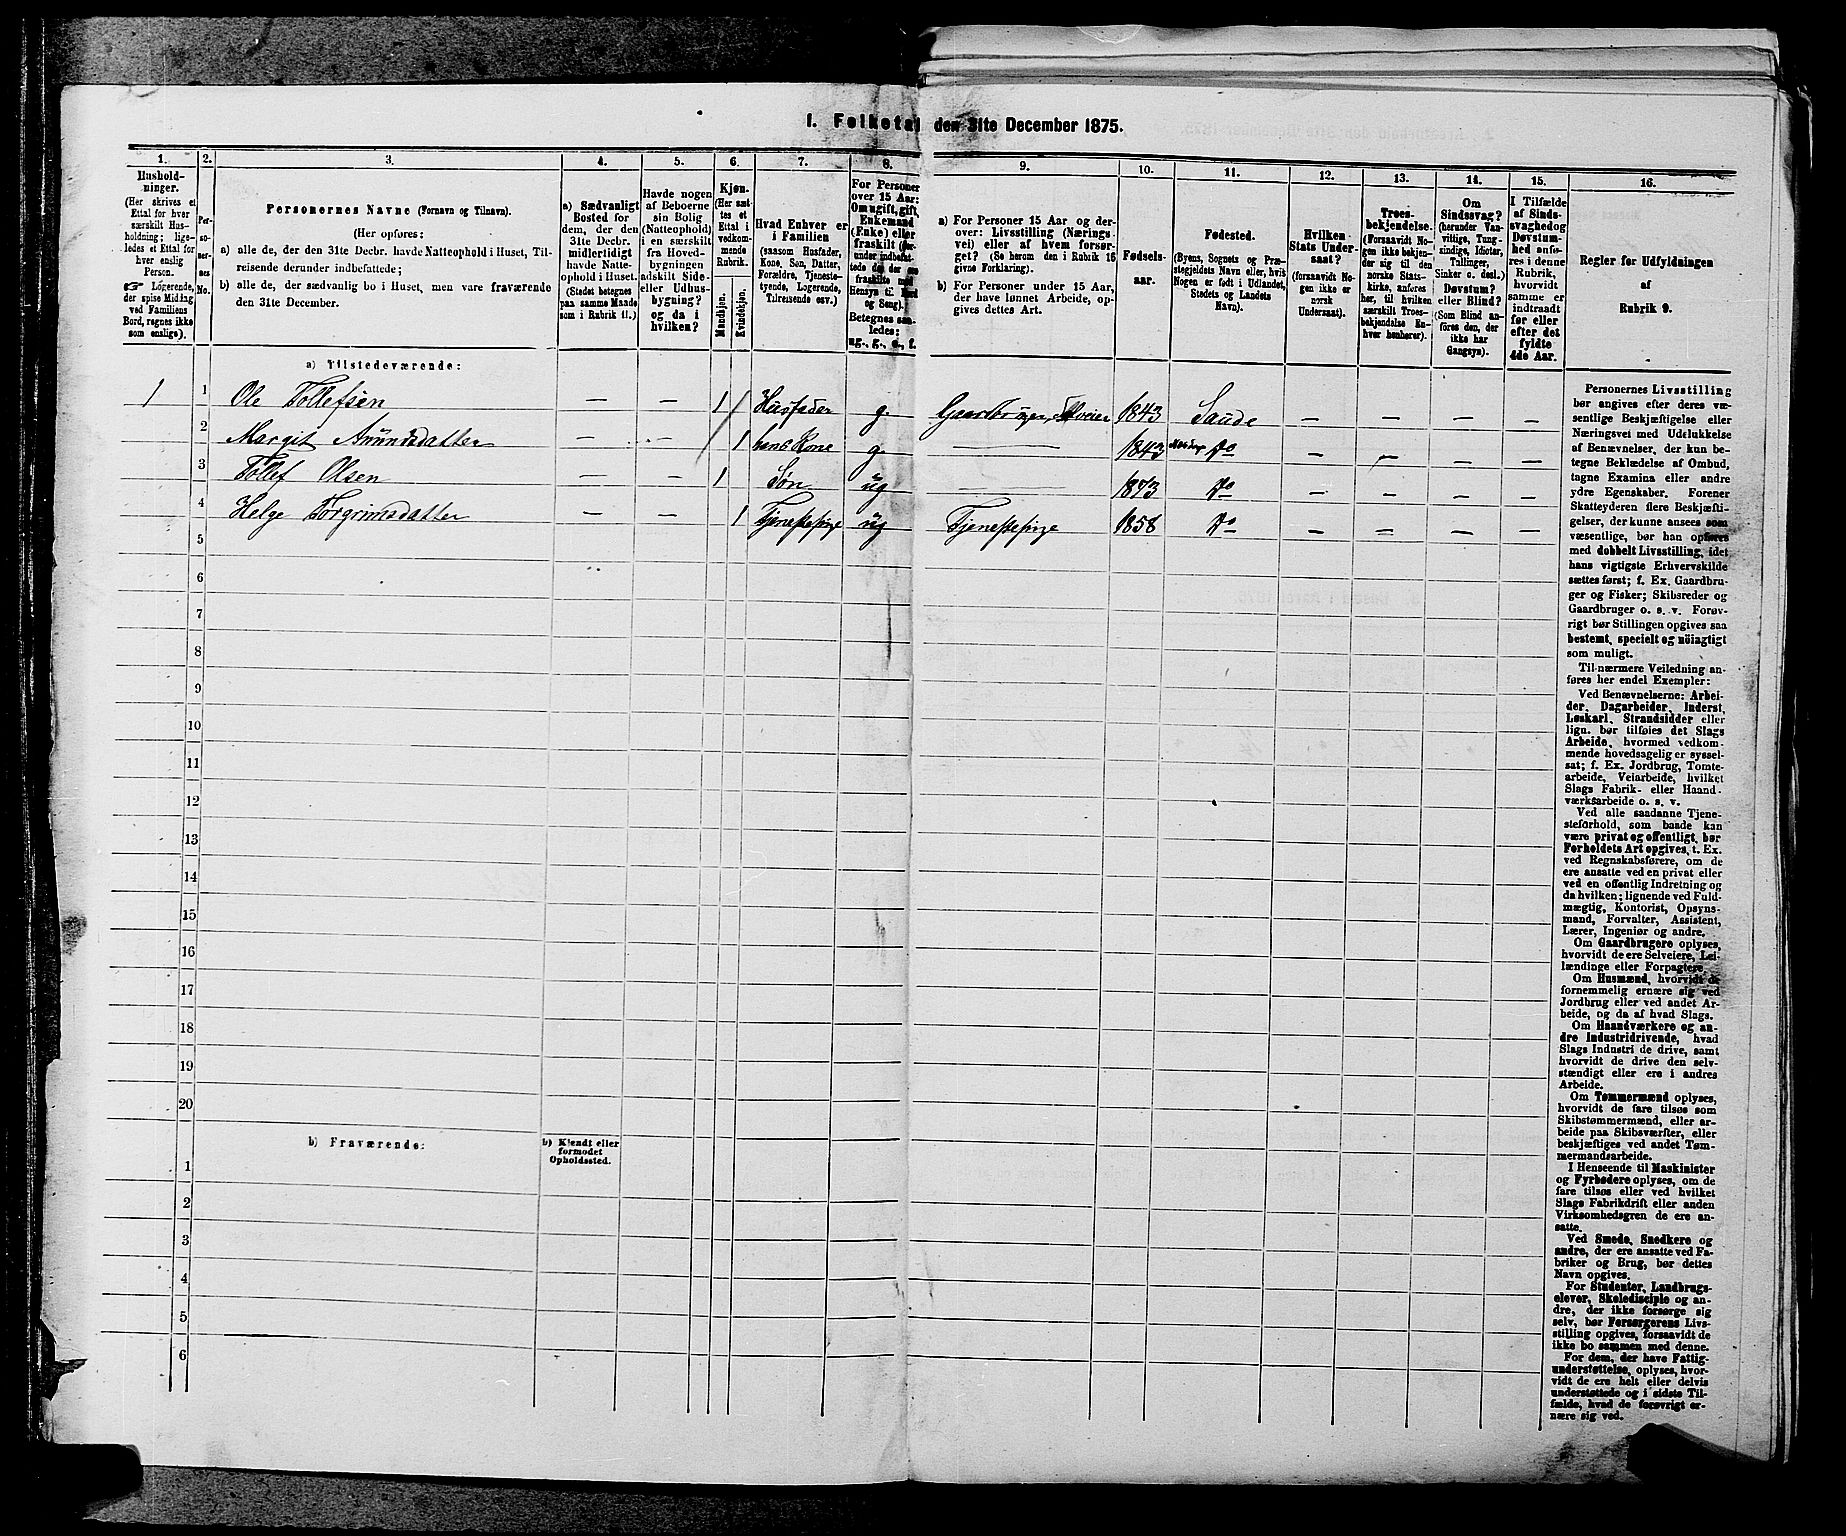 1. Folketal den 31te December 1875.
1. 2. 3. 4. 5. 6. 7. 8. 9. 10. 11. 12. 13. 14. 15. 16.
Hushold-
ninger.
(Her skrives et
Ettal for hver
særskilt Hus-
holdning; lige-
ledes et Ettal for
hver enslig
Person.
☞ Logerende,
der spise Middag
ved Familiens
Bord, regnes ikke
som enslige).
Per-
so-
ner-
nes
No.
Personernes Navne (Fornavn og Tilnavn).
(Her opføres:
a) alle de, der den 31te Decbr. havde Natteophold i Huset, Til-
reisende derunder indbefattede;
b) alle de, der sædvanlig bo i Huset, men vare fraværende
den 31te December.
a) Sædvanligt
Bosted for
dem, der den
31te Decbr.
midlertidigt
havde Natte-
ophold i Huset.
(Stedet betegnes
paa samme Maade
som i Rubrik 11.)
Havde nogen
af Beboerne
sin Bolig
(Natteophold)
i en særskilt
fra Hoved-
bygningen
adskilt Side-
eller Udhus-
bygning?
og da i
hvilken?
Kjøn.
(Her sæt-
tes et
Ettal i
vedkom-
mende
Rubrik.
Mandkjøn.
Kvindekjøn.
Hvad Enhver er
i Familien
(saasom Husfader,
Kone, Søn, Datter,
Forældre, Tjeneste-
tyende, Logerende,
Tilreisende osv.)
For Personer
over 15 Aar:
Om ugift, gift,
Enkemand
(Enke) eller
fraskilt (her-
under indbefat-
tede de, der ere
fraskilte med
Hensyn til Bord
og Seng).
Betegnes saa-
ledes:
ug., g., e., f.
a) For Personer 15 Aar og der-
over: Livsstilling (Nærings-
vei) eller af hvem forsør-
get? (Se herom den i Rubrik 16
givne Forklaring).
b) For Personer under 15 Aar,
der have lønnet Arbeide, op-
gives dettes Art.
Fødsels-
aar.
Fødested.
(Byens, Sognets og Præ-
stegjeldets Navn eller, hvis
Nogen er født i Udlandet,
Stedets og Landets
Navn).
Hvilken
Stats Under-
saat?
(forsaavidt No-
gen ikke er
norsk
Undersaat).
Troes-
bekjendelse.
(Forsaavidt No-
gen ikke bekjen-
der sig til den
norske Stats-
kirke, anføres
her, til hvilken
særskilt Troes-
bekjendelse En-
hver henhører).
Om
Sindssvag?
(herunder Van-
vittige, Tung-
sindige, Idioter,
Tullinger,
Sinker o. desl.)
Døvstum?
eller Blind?
(Som Blind an-
føres den, der
ikke har
Gangsyn).
I Tilfælde
af Sinds-
svaghed og
Døvstum-
hed anfø-
res i denne
Rubrik,
hvorvidt
samme er
indtraadt
før eller
efter det
fyldte
4de Aar.
Regler for Udfyldningen
af
Rubrik 9.
a) Tilstedeværende:
1 1 Ole Tollefsen — — 1 Husfader g. Gaardbruger, Selveier 1843 Saude — — — —
2 Margit Amundsdatter — — 1 hans Kone g. — 1843 Do — — — —
3 Tollef Olsen — — 1 Søn ug — 1873 Do — — — —
4 Helge Torgrimsdatter — — 1 Tjenestepige ug Tjenestepige 1858 Do — — — —
5
6
7
8
9
10
11
12
13
14
15
16
17
18
19
20
b) Fraværende: b) Kjendt eller
formodet
Opholdssted.
1
2
3
4
5
6
Personernes Livsstilling
bør angives efter deres væ-
sentlige Beskjæftigelse eller
Næringsvei med Udelukkelse
af Benævnelser, der kun be-
tegne Beklædelse af Ombud,
tagne Examina eller andre
ydre Egenskaber. Forener
Skatteyderen flere Beskjæfti-
gelser, der kunne ansees som
væsentlige, bør han opføres
med dobbelt Livsstilling, idet
hans vigtigste Erhvervskilde
sættes først; f. Ex. Gaardbru-
ger og Fisker; Skibsreder og
Gaardbruger o. s. v. Forøv-
rigt bør Stillingen opgives saa
bestemt, specielt og nöiagtigt
som muligt.
Til nærmere Veiledning an-
føres her endel Exempler:
Ved Benævnelserne: Arbei-
der, Dagarbeider, Inderst,
Løskarl, Strandsidder eller
lign. bør tilføies det Slags
Arbeide, hvormed vedkom-
mende hovedsagelig er syssel-
sat; f. Ex. Jordbrug, Tomte-
arbeide, Veiarbeide, hvilket
Slags Fabrik- eller Haand-
værksarbeide o. s. v.
Ved alle saadanne Tjene-
steforhold, som baade kan
være privat og offentligt, bør
Forholdets Art opgives, t. Ex.
ved Regnskabsførere, om de
ere ansatte ved en privat eller
ved en offentlig Indretning og
da hvilken; lignende ved Fuld-
mægtig, Kontorist, Opsyns-
mand, Forvalter, Assistent,
Lærer, Ingeniør og andre.
Om Gaardbrugere oplyses,
hvorvidt de ere Selveiere, Lei-
lændinge eller Forpagtere
Om Husmænd, hvorvidt de
fornemmelig ernære sig ved
Jordbrug eller ved andet Ar-
beide, og da af hvad Slags.
Om Haandværkere og an-
dre Industridrivende, hvad
Slags Industri de drive, samt
hvorvidt de drive den selv-
stændigt eller ere i andres
Arbeide.
Om Tømmermænd oplyses,
hvorvidt de fare tilsøs som
Skibstømmermænd, eller ar-
beide paa Skibsværfter, eller
beskjæftiges ved andet Tøm-
mermandsarbeide.
I Henseende til Maskinister
og Fyrbødere oplyses, om de
fare tilsøs eller ved hvilket
Slags Fabrikdrift eller anden
Virksomhedsgren de ere an-
satte.
Ved Smede, Snedkere og
andre, der ere ansatte ved Fa-
briker og Brug, bør dettes
Navn opgives.
For Studenter, Landbrugs-
elever, Skoledisciple og an-
dre, der ikke forsørge sig
selv, bør Forsørgerens Livs-
stilling opgives, forsaavidt de
ikke bo sammen med denne.
For dem, der have Fattig-
understøttelse, oplyses, hvor-
vidt de ere helt eller delvis
understøttede og i sidste Til-
fælde, hvad de forøvrigt er-
nære sig ved.